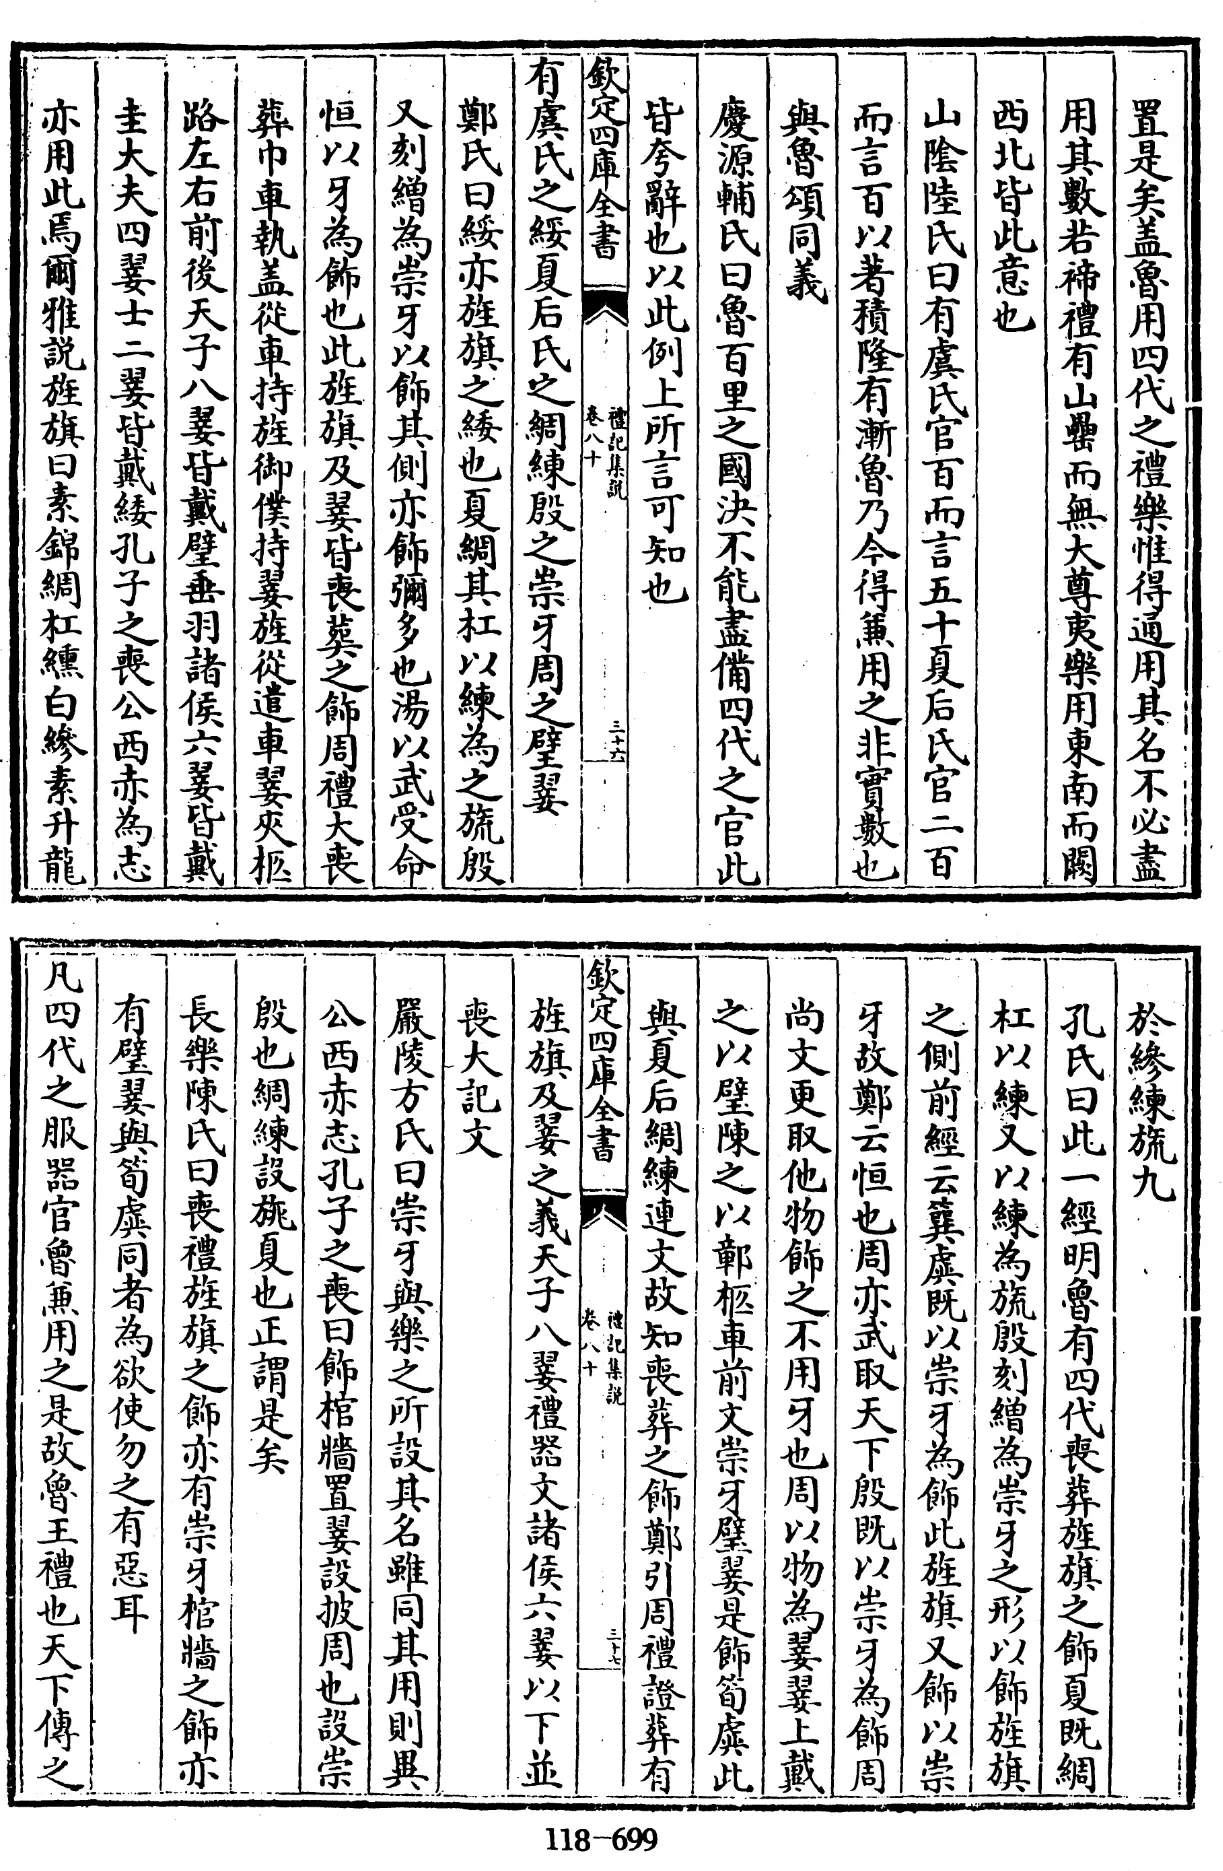 置是矣盖魯用四代之禮樂惟得通用其名不必盡
用其數若禘禮有山罍而無大尊夷樂用東南而闕
西北皆此意也
山陰陸氏曰有虞氏官百而言五十夏后氏官二百
而言百以著積隆有漸魯乃今得蒹用之非實數也
與魯頌同義
慶源輔氏曰魯百里之國決不能盡備四代之官此
皆夸辭也以此例上所言可知也
欽定四庫全書
禮記集說
卷八十
三十六
有虞氏之綏夏后氏之綢練殷之崇牙周之璧翣
鄭氏曰綏亦旌旗之緌也夏綢其杠以練為之旒殷
又刻繒為崇牙以飾其側亦飾彌多也湯以武受命
恒以牙為飾也此旌旗及翣皆喪葬之飾周禮大喪
葬巾車執盖從車持旌御僕持翣旌從遣車翣夾柩
路左右前後天子八翣皆戴璧垂羽諸侯六翣皆戴
圭大夫四翣士二翣皆戴緌孔子之喪公西赤為志
亦用此焉爾雅説旌旗曰素錦綢杠纁白縿素升龍
於縿練旒九
孔氏曰此一經明魯有四代喪葬旌旗之飾夏既綢
杠以練又以練為旒殷刻繒為崇牙之形以飾旌旗
之側前經云簨虡既以崇牙為飾此旌旗又飾以崇
牙故鄭云恒也周亦武取天下殷既以崇牙為飾周
尚文更取他物飾之不用牙也周以物為翣翣上戴
之以璧陳之以鄣柩車前文崇牙璧翣是飾筍虡此
與夏后綢練連文故知喪葬之飾鄭引周禮證葬有
欽定四庫全書
禮記集說
卷八十
三十七
旌旗及翣之義天子八翣禮器文諸侯六翣以下並
喪大記文
嚴陵方氏曰崇牙與樂之所設其名雖同其用則異
公西赤志孔子之喪曰飾棺牆置翣設披周也設崇
殷也綢練設旐夏也正謂是矣
長樂陳氏曰喪禮旌旗之飾亦有崇牙棺牆之飾亦
有璧翣與筍虡同者為欲使勿之有惡耳
凡四代之服器官魯蒹用之是故魯王禮也天下傳之
118-699